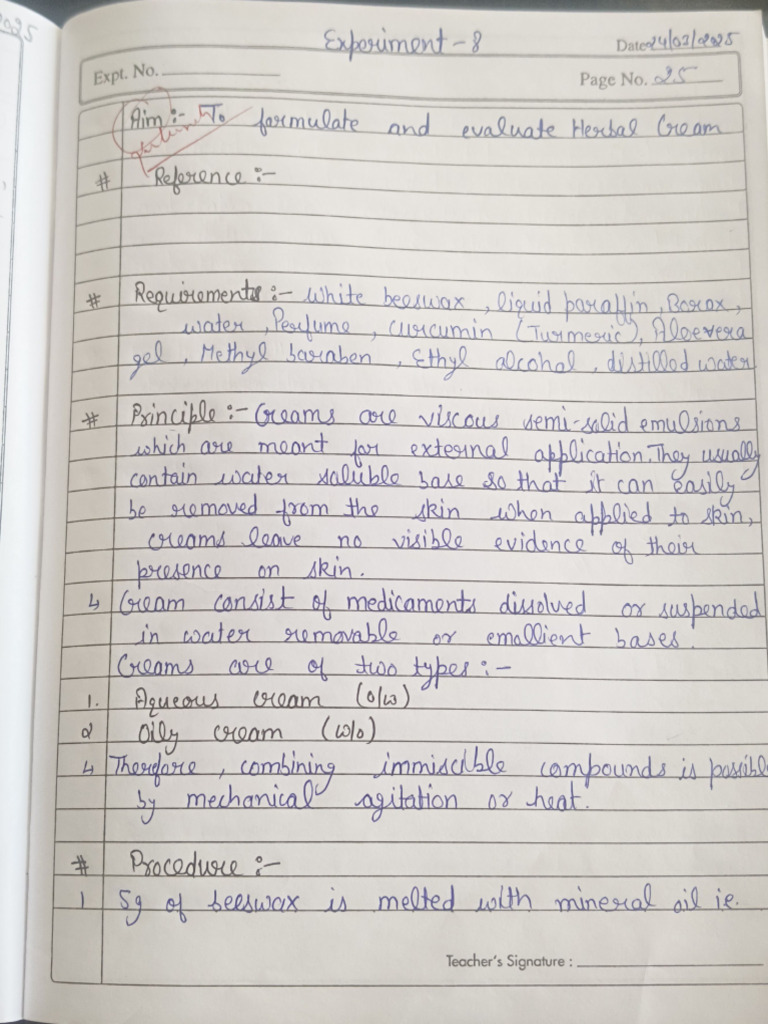 2025
Experiment - 8
Date 24/03/2025
Expt. No.
Page No. 25
Aim :- To formulate and evaluate Herbal Cream
# Reference :-
# Requirements :- White beeswax , liquid paraffin , Borax ,
water , Perfume , curcumin (Turmeric) , Aloevera
gel , Methyl baraben , Ethyl alcohol , distilled water
# Principle :- Creams are viscous semi-solid emulsions
which are meant for external application. They usually
contain water soluble base so that it can easily
be removed from the skin when applied to skin,
creams leave no visible evidence of their
presence on skin.
↳ Cream consist of medicaments dissolved or suspended
in water removable or emallient bases.
Creams are of two types :-
1. Aqueous cream (o/w)
2 Oily cream (w/o)
↳ Therefore , combining immiscible compounds is possible
by mechanical agitation or heat.
# Procedure :-
1 5g of beeswax is melted with mineral oil ie.
Teacher's Signature :